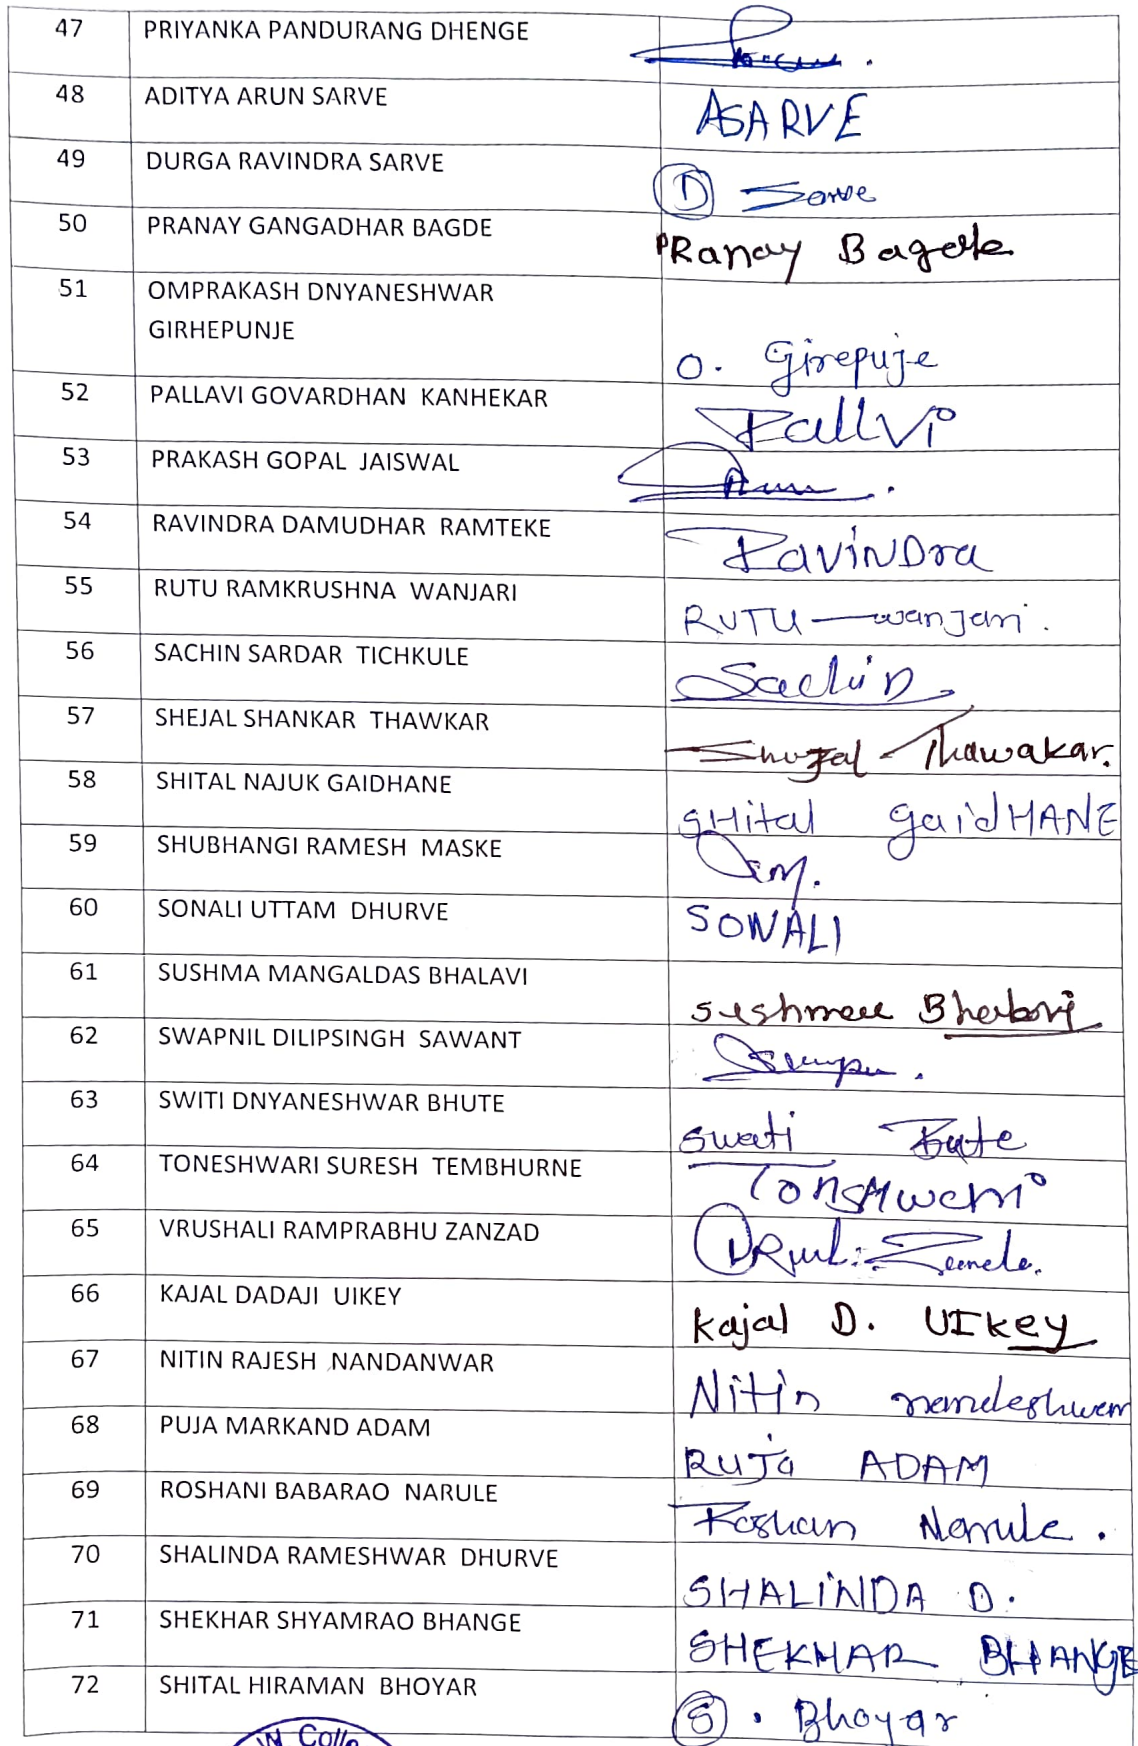 47 PRIYANKA PANDURANG DHENGE
48 ADITYA ARUN SARVE ASARVE
49 DURGA RAVINDRA SARVE D Sarve
50 PRANAY GANGADHAR BAGDE PRanay Bagde
51 OMPRAKASH DNYANESHWAR
GIRHEPUNJE O. Girepuje
52 PALLAVI GOVARDHAN KANHEKAR Pallvi
53 PRAKASH GOPAL JAISWAL
54 RAVINDRA DAMUDHAR RAMTEKE RaviNDra
55 RUTU RAMKRUSHNA WANJARI RUTU - wanjari.
56 SACHIN SARDAR TICHKULE Sachin
57 SHEJAL SHANKAR THAWKAR Thawakar.
58 SHITAL NAJUK GAIDHANE SHital gaidHANE
59 SHUBHANGI RAMESH MASKE
60 SONALI UTTAM DHURVE SONALI
61 SUSHMA MANGALDAS BHALAVI
62 SWAPNIL DILIPSINGH SAWANT
63 SWITI DNYANESHWAR BHUTE Swati Bute
64 TONESHWARI SURESH TEMBHURNE
65 VRUSHALI RAMPRABHU ZANZAD
66 KAJAL DADAJI UIKEY Kajal D. UIKey
67 NITIN RAJESH NANDANWAR Nitin
68 PUJA MARKAND ADAM PUJa ADAM
69 ROSHANI BABARAO NARULE Roshan Narule.
70 SHALINDA RAMESHWAR DHURVE SHALINDA D.
71 SHEKHAR SHYAMRAO BHANGE SHEKHAR BHANGE
72 SHITAL HIRAMAN BHOYAR S. Bhoyar